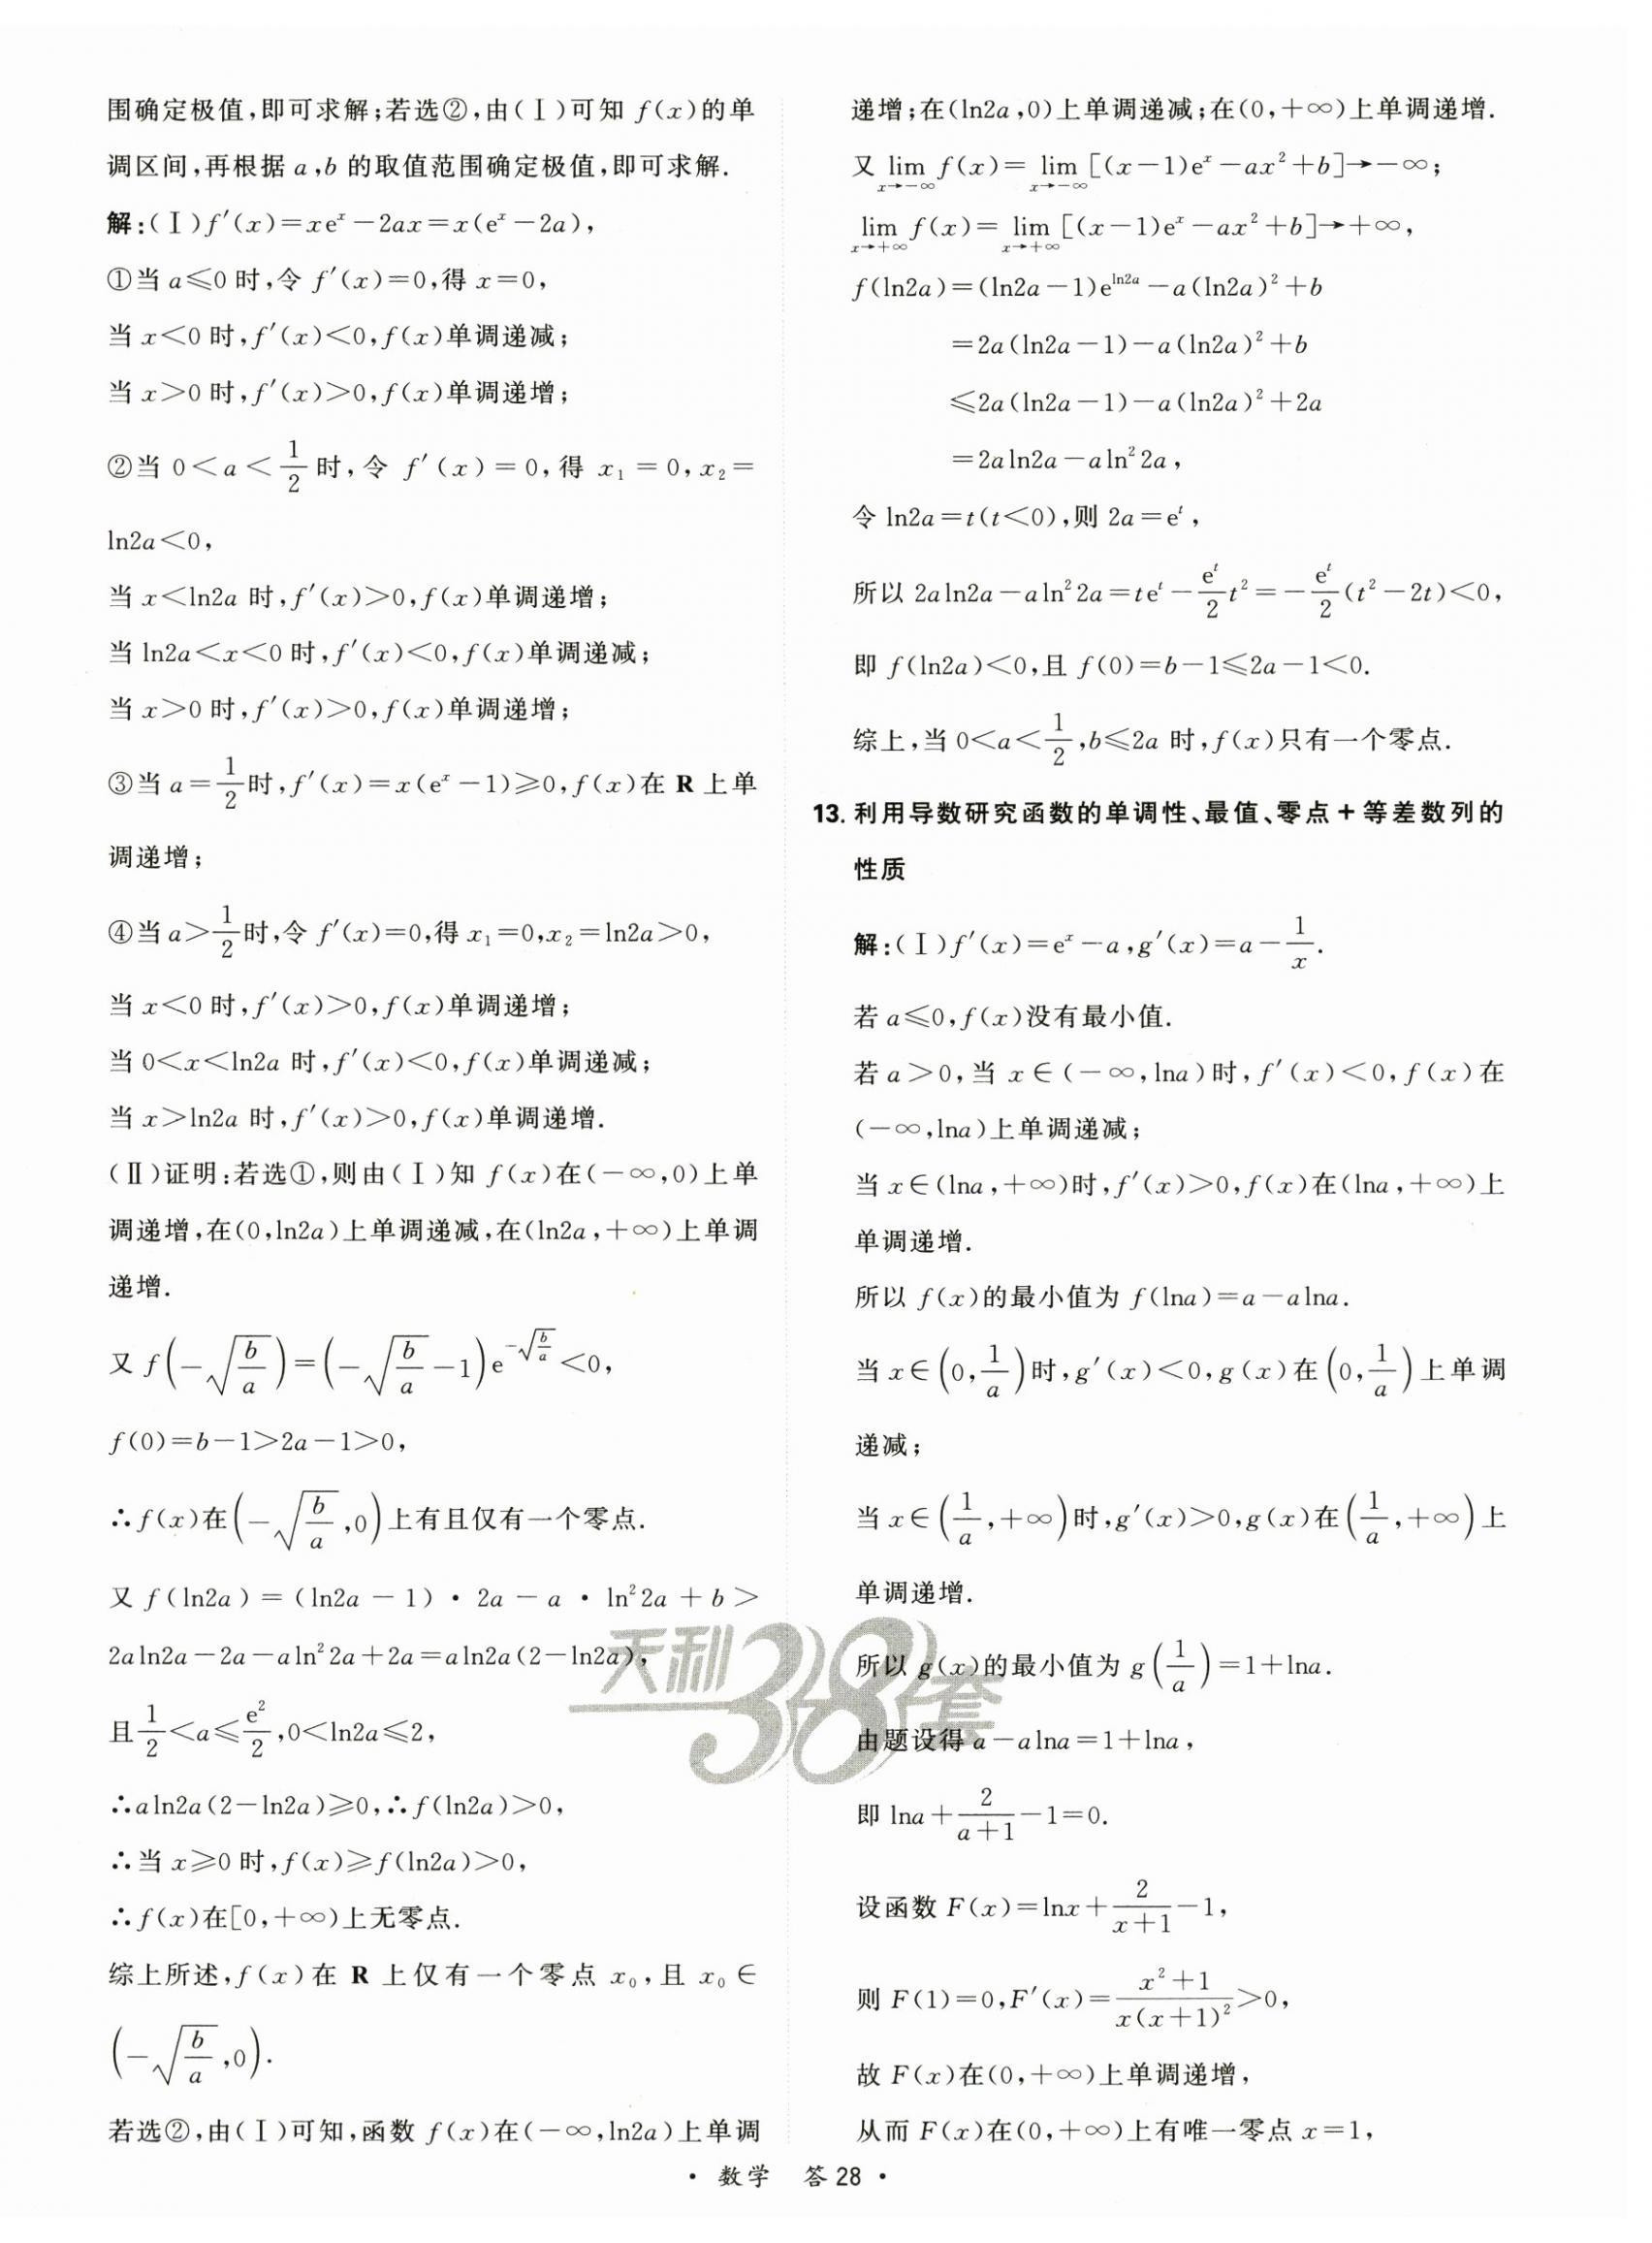 围确定极值,即可求解;若选②,由(Ⅰ)可知 f(x)的单
调区间,再根据 a,b 的取值范围确定极值,即可求解.
解:(Ⅰ)f′(x)=xeˣ-2ax=x(eˣ-2a),
①当 a≤0 时,令 f′(x)=0,得 x=0,
当 x<0 时,f′(x)<0,f(x)单调递减;
当 x>0 时,f′(x)>0,f(x)单调递增;
②当 0<a<1/2 时,令 f′(x)=0,得 x₁=0,x₂=
ln2a<0,
当 x<ln2a 时,f′(x)>0,f(x)单调递增;
当 ln2a<x<0 时,f′(x)<0,f(x)单调递减;
当 x>0 时,f′(x)>0,f(x)单调递增;
③当 a=1/2时,f′(x)=x(eˣ-1)≥0,f(x)在 R 上单
调递增;
④当 a>1/2时,令 f′(x)=0,得 x₁=0,x₂=ln2a>0,
当 x<0 时,f′(x)>0,f(x)单调递增;
当 0<x<ln2a 时,f′(x)<0,f(x)单调递减;
当 x>ln2a 时,f′(x)>0,f(x)单调递增.
(Ⅱ)证明:若选①,则由(Ⅰ)知 f(x)在(-∞,0)上单
调递增,在(0,ln2a)上单调递减,在(ln2a,+∞)上单调
递增.
又 f(-√(b/a))=(-√(b/a)-1)e^(-√(b/a))<0,
f(0)=b-1>2a-1>0,
∴f(x)在(-√(b/a),0)上有且仅有一个零点.
又 f(ln2a)=(ln2a-1)·2a-a·ln²2a+b>
2aln2a-2a-aln²2a+2a=aln2a(2-ln2a),
且1/2<a≤e²/2,0<ln2a≤2,
∴aln2a(2-ln2a)≥0,∴f(ln2a)>0,
∴当 x≥0 时,f(x)≥f(ln2a)>0,
∴f(x)在[0,+∞)上无零点.
综上所述,f(x)在 R 上仅有一个零点 x₀,且 x₀∈
(-√(b/a),0).
若选②,由(Ⅰ)可知,函数 f(x)在(-∞,ln2a)上单调
递增;在(ln2a,0)上单调递减;在(0,+∞)上单调递增.
又 lim(x→-∞) f(x)=lim(x→-∞)[(x-1)eˣ-ax²+b]→-∞;
lim(x→+∞) f(x)=lim(x→+∞)[(x-1)eˣ-ax²+b]→+∞,
f(ln2a)=(ln2a-1)e^(ln2a)-a(In2a)²+b
=2a(ln2a-1)-a(ln2a)²+b
≤2a(ln2a-1)-a(ln2a)²+2a
=2aln2a-aln²2a,
令 ln2a=t(t<0),则 2a=eᵗ,
所以 2aln2a-aln²2a=teᵗ-(eᵗ/2)t²=-(eᵗ/2)(t²-2t)<0,
即 f(ln2a)<0,且 f(0)=b-1≤2a-1<0.
综上,当 0<a<1/2,b≤2a 时,f(x)只有一个零点.
13. 利用导数研究函数的单调性、最值、零点+等差数列的
性质
解:(Ⅰ)f′(x)=eˣ-a,g′(x)=a-1/x.
若 a≤0,f(x)没有最小值.
若 a>0,当 x∈(-∞,lna)时,f′(x)<0,f(x)在
(-∞,lna)上单调递减;
当 x∈(lna,+∞)时,f′(x)>0,f(x)在(lna,+∞)上
单调递增.
所以 f(x)的最小值为 f(lna)=a-alna.
当 x∈(0,1/a)时,g′(x)<0,g(x)在(0,1/a)上单调
递减;
当 x∈(1/a,+∞)时,g′(x)>0,g(x)在(1/a,+∞)上
单调递增.
所以 g(x)的最小值为 g(1/a)=1+lna.
由题设得 a-alna=1+lna,
即 lna+2/(a+1)-1=0.
设函数 F(x)=lnx+2/(x+1)-1,
则 F(1)=0,F′(x)=(x²+1)/(x(x+1)²)>0,
故 F(x)在(0,+∞)上单调递增,
从而 F(x)在(0,+∞)上有唯一零点 x=1,
天利38套
· 数学 答 28 ·